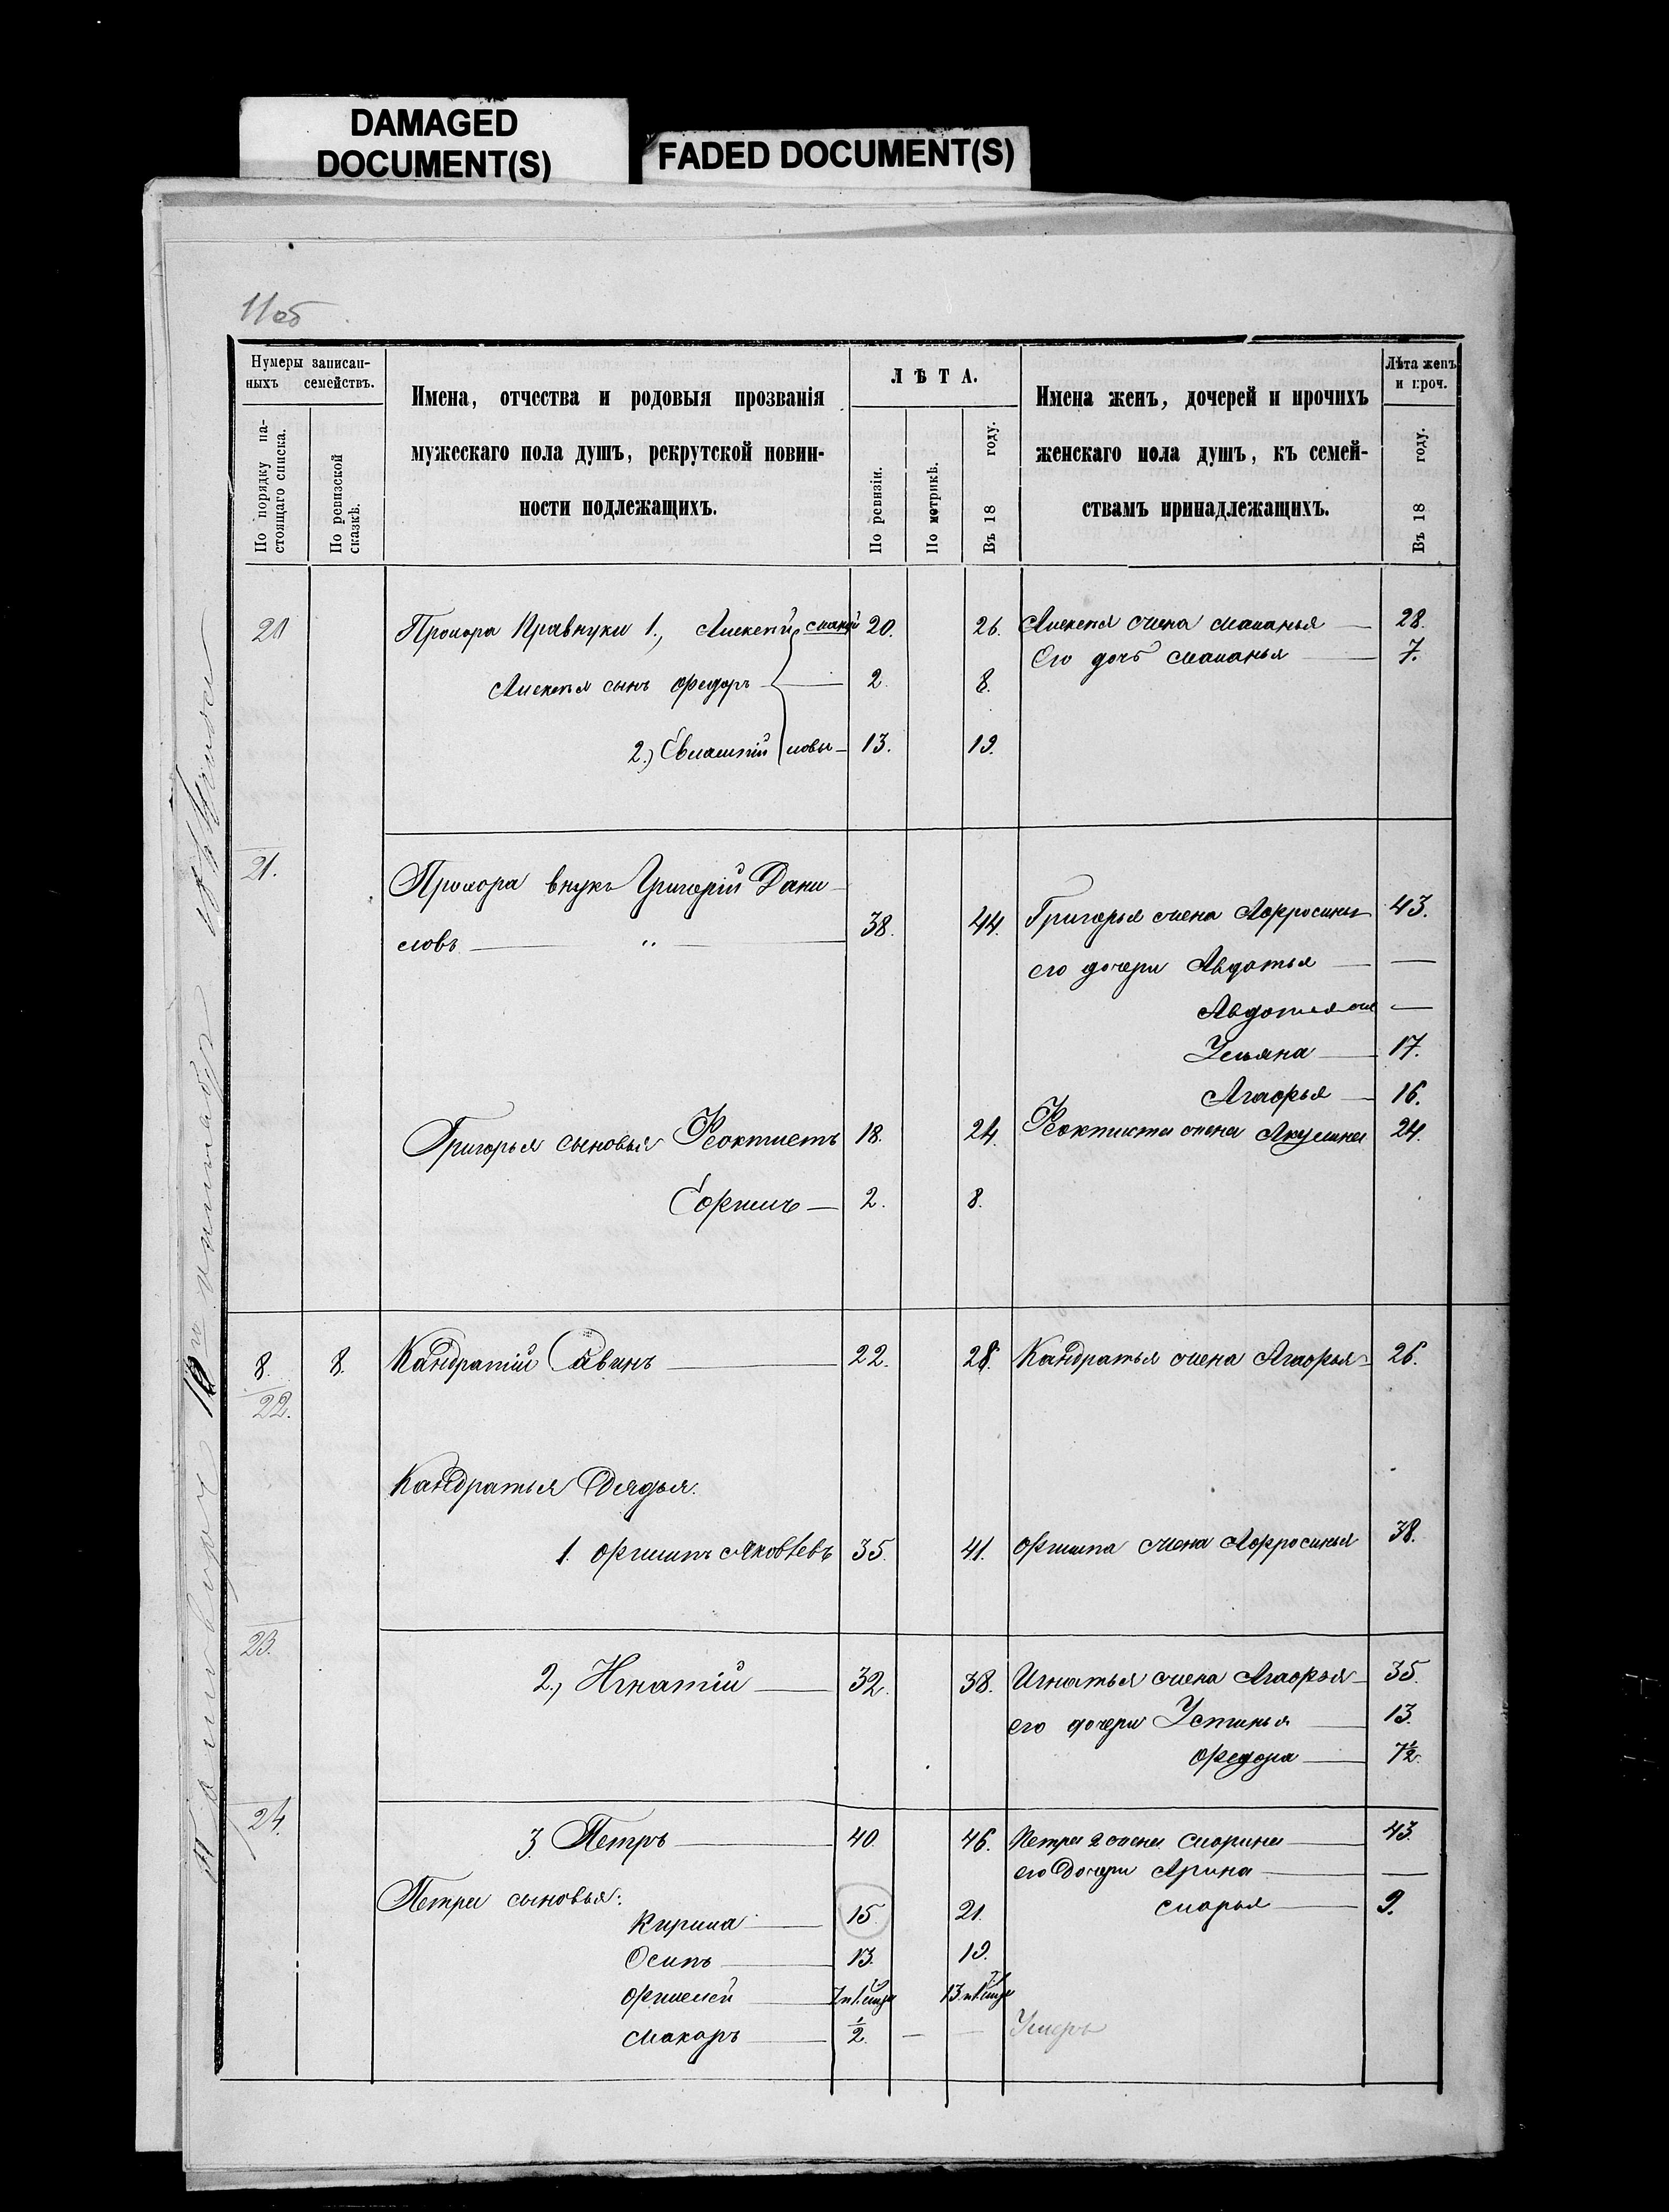 DAMAGED
DOCUMENT(S)
FADED DOCUMENT(S)
11об
Нумеры записан-
ныхъ семействъ.
По порядку на-
стоящаго списка.
По ревизской
сказкѣ.
Имена, отчества и родовыя прозванія
мужескаго пола душъ, рекрутской повин-
ности подлежащихъ.
ЛѢТА.
По ревизіи.
По метрикѣ.
Въ 18 году.
Имена женъ, дочерей и прочихъ
женскаго пола душъ, къ семей-
ствамъ принадлежащихъ.
Лѣта женъ
и проч.
Въ 18 году.
20 Прохора Правнуки 1., Алексѣй 20. 26. Алексѣя жена Маланья 28.
Его дочь Маланья 7.
Алексѣя сынъ Федоръ 2. 8.
2.) Евлампій 13. 19.
21. Прохора внукъ Григорій Дани
ловъ 38. 44. Григорья жена Афросинья 43.
его дочери Авдотья —
Авдотья же —
Ульяна 17.
Агафья 16.
Григорья сыновья Феоктистъ 18. 24. Феоктиста жена Акулина 24.
Ефимъ 2. 8.
8. 8. Кандратій Савинъ 22. 28. Кандратья жена Агафья 26.
22.
Кандратья Дядья.
1. Филипъ Яковлевъ 35. 41. Филипа жена Афросинья 38.
23.
2., Игнатій 32. 38. Игнатья жена Агафья 35.
его дочери Устинья 13.
Федора 7½.
24.
3. Петръ 40. 46. Петра 2 жена Марина 43.
его Дочери Арина —
Марья 9.
Петра сыновья:
Кирила 15. 21.
Осипъ 13. 19.
Филипъ
Макаръ ½. — — Умеръ